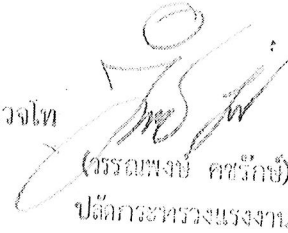 วจโท
(วรรณพงษ์ คชรักษ์)
ปลัดกระทรวงแรงงาน